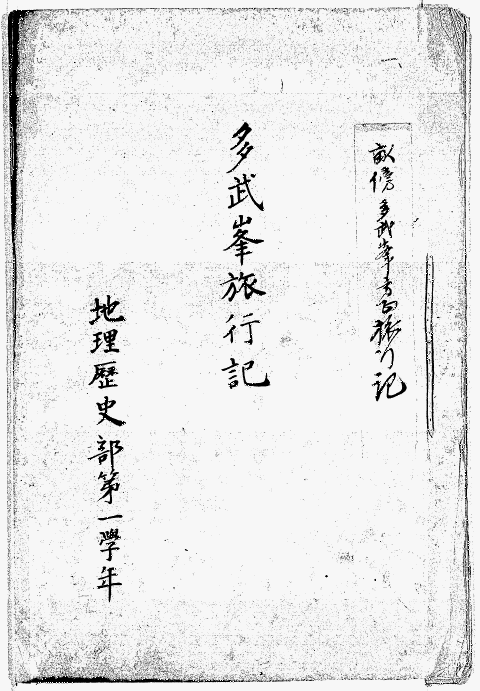 畝傍多武峯方面旅行記
多武峯旅行記
地理歷史部第一學年